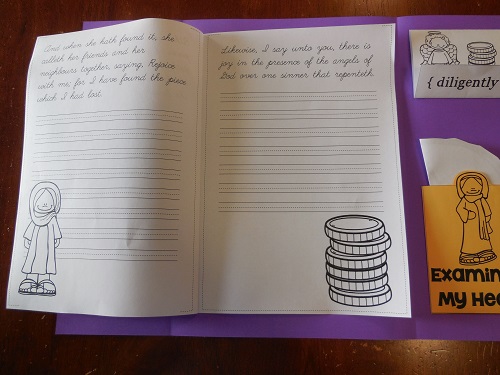 And when she hath found it, she
calleth her friends and her
neighbours together, saying, Rejoice
with me; for I have found the piece
which I had lost.
Likewise, I say unto you, there is
joy in the presence of the angels of
God over one sinner that repenteth.
{ diligently
Examin
My Hea